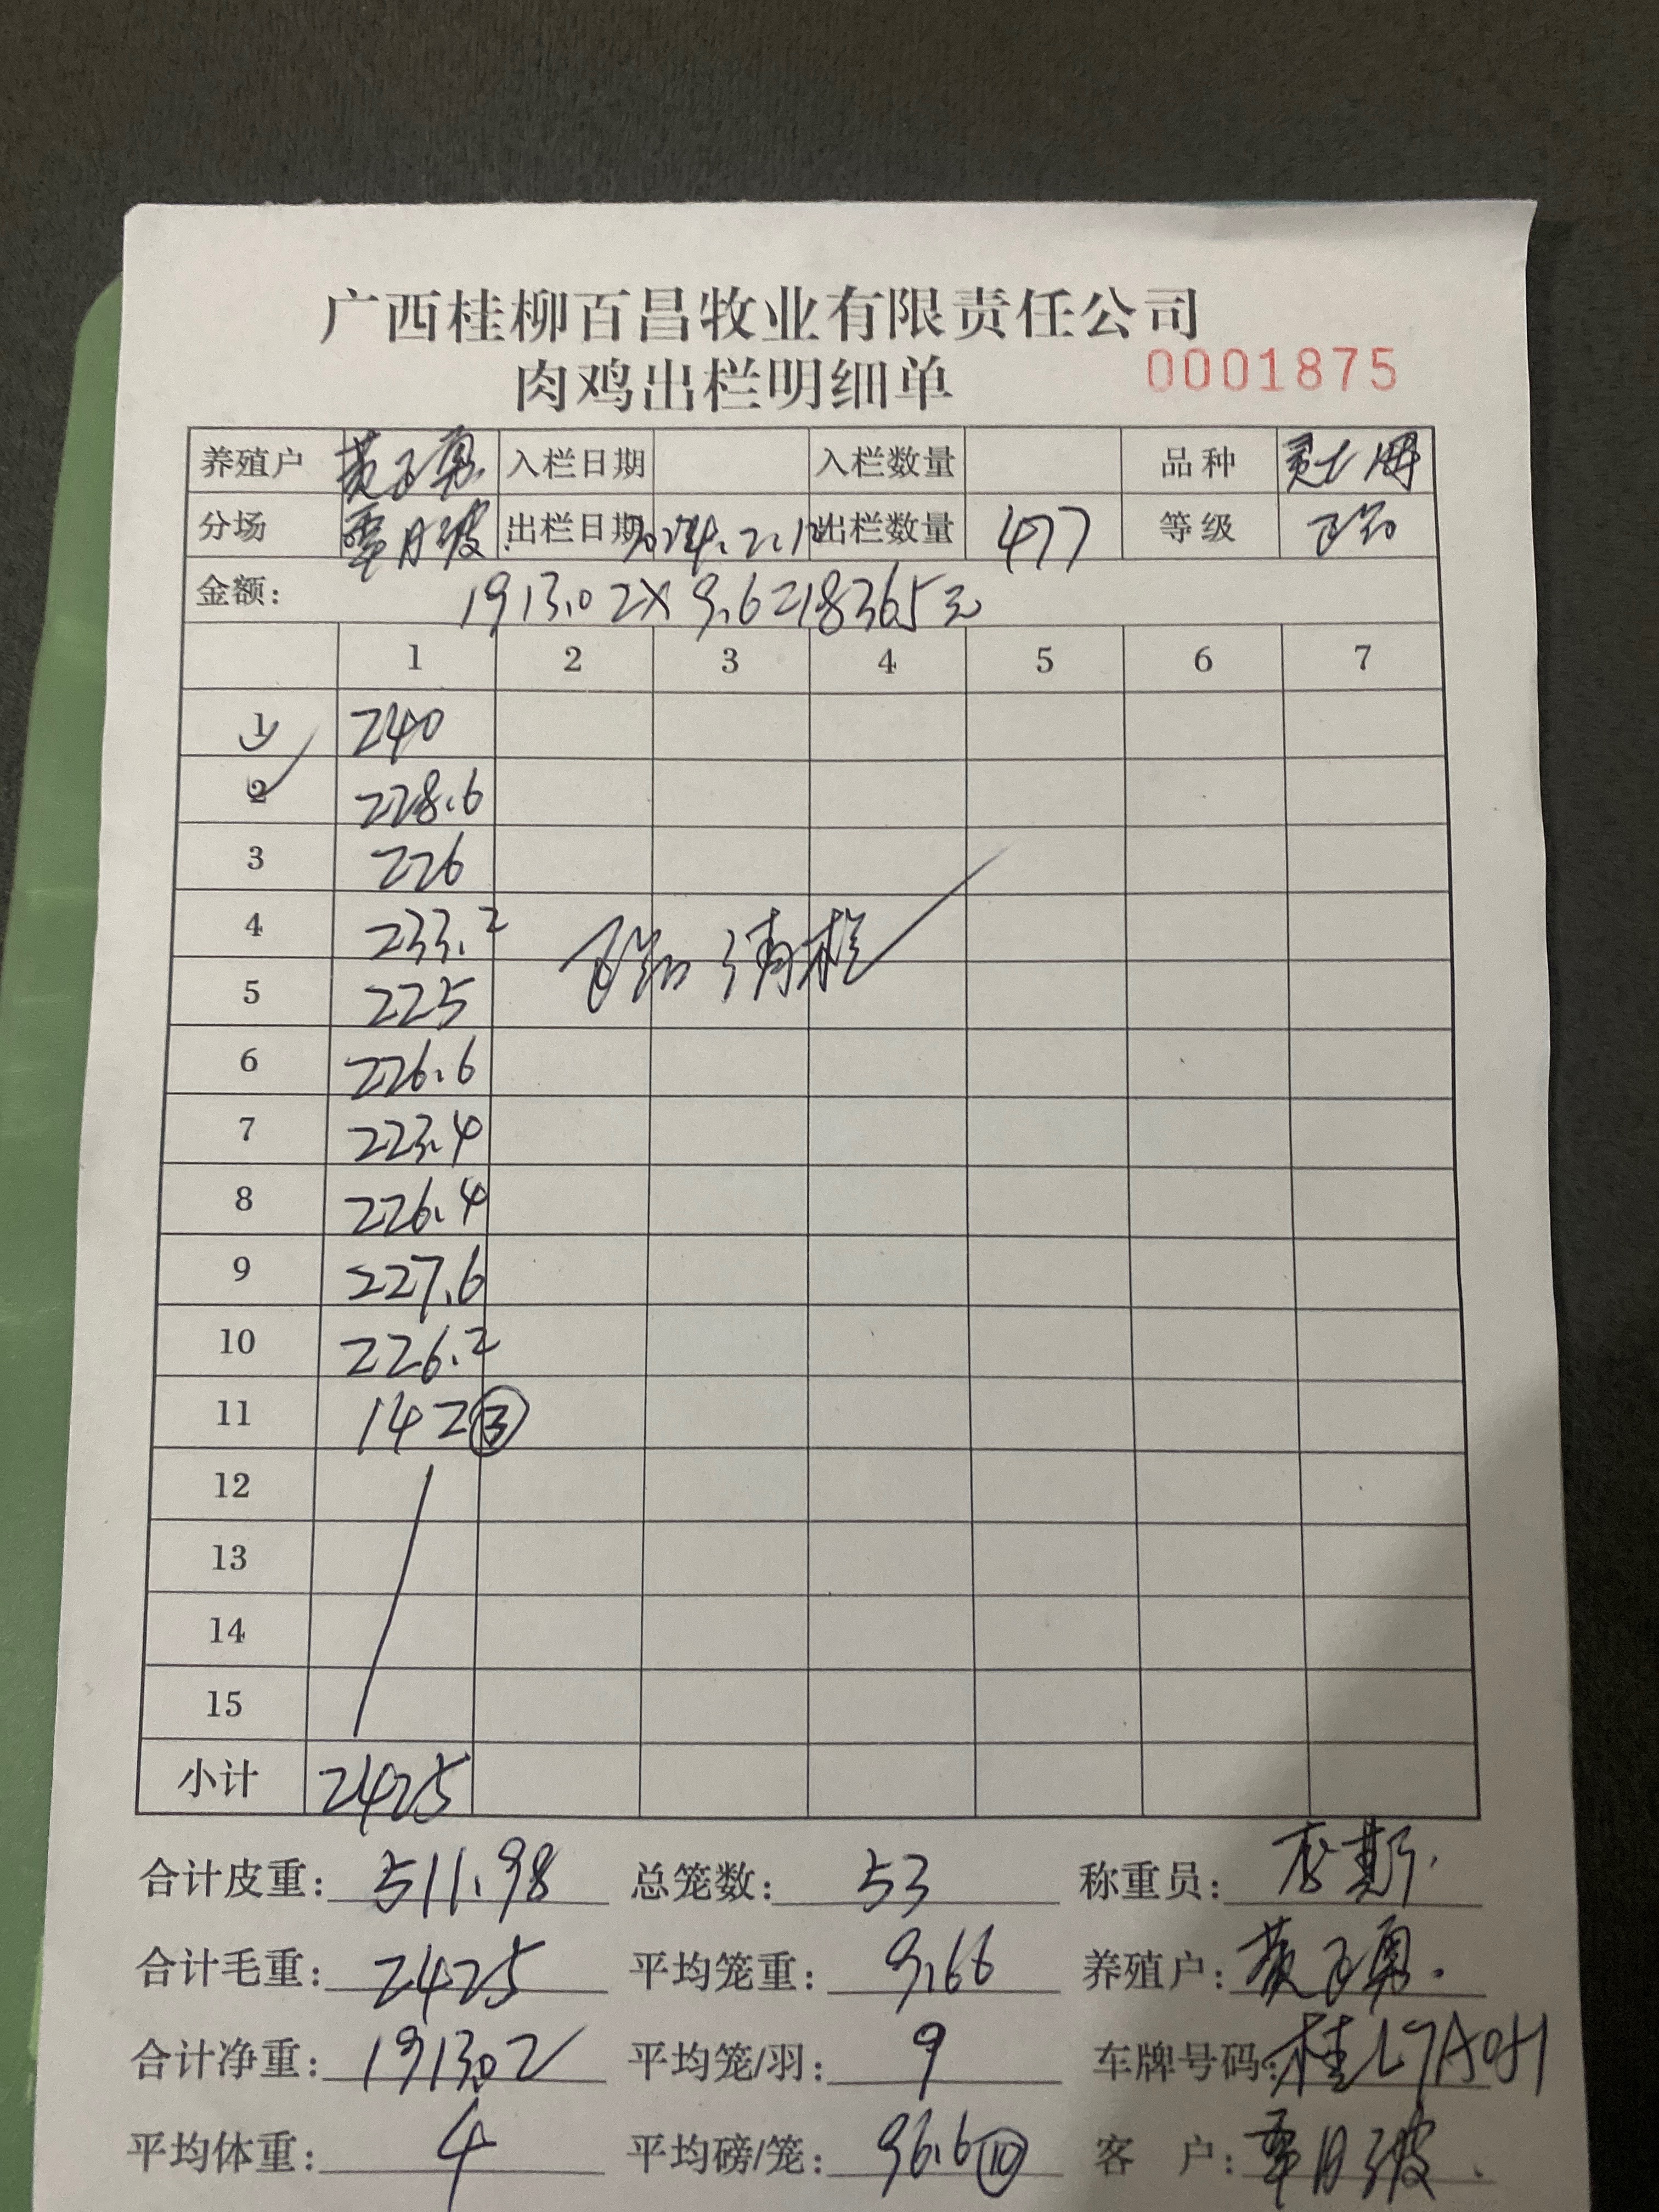 广西桂柳百昌牧业有限责任公司
肉鸡出栏明细单 0001875
养殖户 黄 勇 入栏日期 入栏数量 品种
分场 覃月波 出栏日期 2024.2.12 出栏数量 477 等级
金额: 1913.02×9.6=18365元
1 2 3 4 5 6 7
1 240
2 228.6
3 226
4 233.2
5 225 清栏
6 226.6
7 223.4
8 226.4
9 227.6
10 226.2
11 142 ③
12
13
14
15
小计 2425
合计皮重: 511.98 总笼数: 53 称重员: 李斯
合计毛重: 2425 平均笼重: 9.66 养殖户: 黄 勇
合计净重: 1913.02 平均笼/羽: 9 车牌号码: 桂L7A0H
平均体重: 4 平均磅/笼: 96.6 ⑩ 客 户: 覃月波